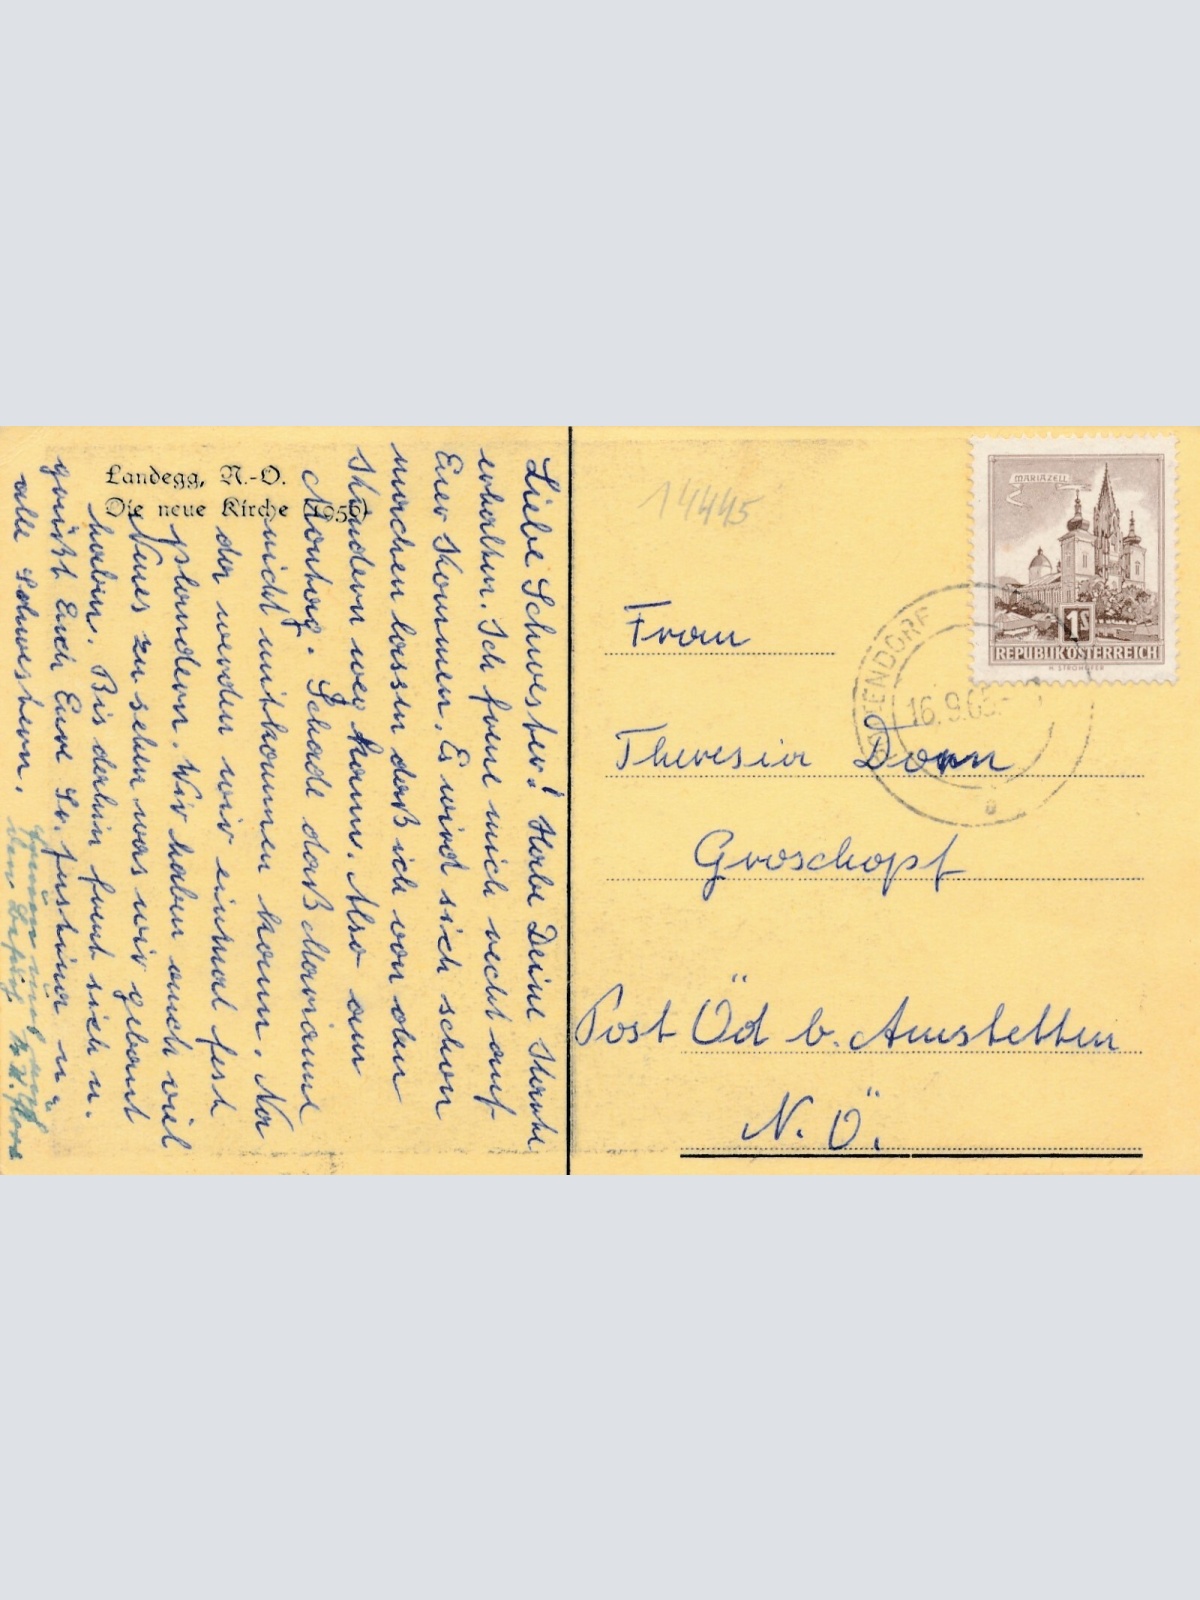 Landegg, N.-O.
Die neue Kirche (1959)
Liebe Schwester! Habe Deine Karte
erhalten. Ich freue mich recht auf
Euer Kommen. Es wird sich schon
machen lassen daß ich von den
Kindern weg kann. Also am
Montag. Schade daß Marianne
nicht mitkommen kann. Na
da werden wir einmal fest
plaudern. Wir haben auch viel
Neues zu sehen was wir gebaut
haben. Bis dahin freut sich u.
grüßt Euch Eure Sr. Justina u.
alle Schwestern.
14445
Frau
Theresia Dorn
Groschopf
Post Öd b. Amstetten
N. Ö.
MARIAZELL
1S
REPUBLIK ÖSTERREICH
ENDORF
16.9.65
a